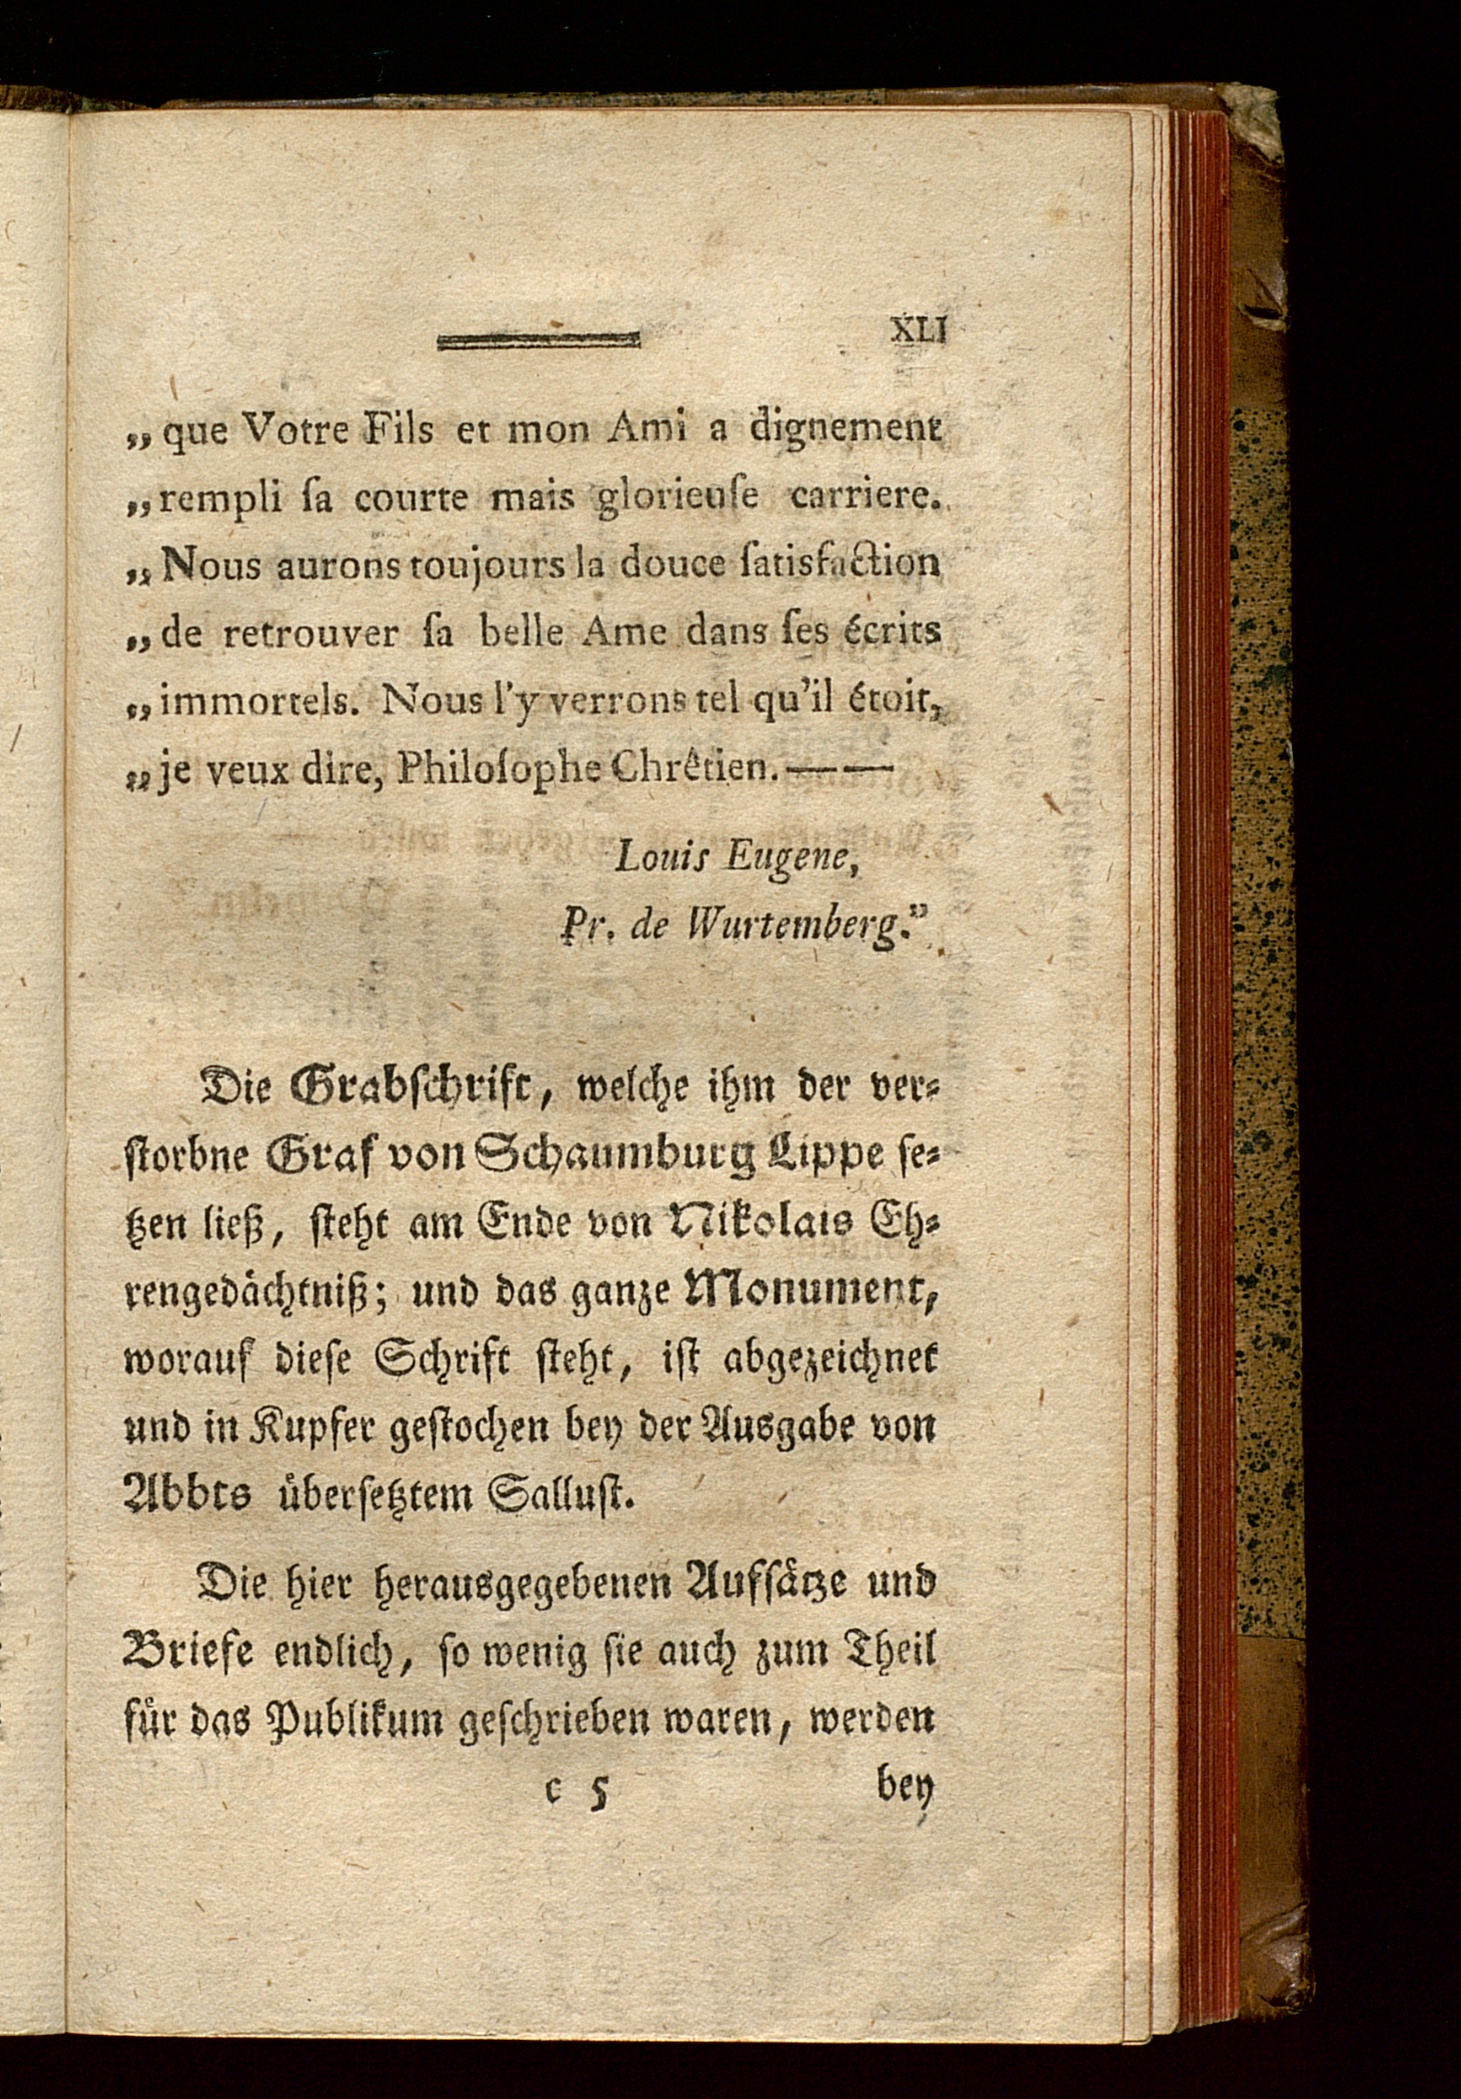 XLI
„que Votre Fils et mon Ami a dignement
„rempli ſa courte mais glorieuſe carriere.
„Nous aurons toujours la douce ſatisfaction
„de retrouver ſa belle Ame dans ſes écrits
„immortels. Nous l'y verrons tel qu'il étoit,
„je veux dire, Philoſophe Chrêtien. — —
Louis Eugene,
Pr. de Wurtemberg.”
Die Grabſchrift, welche ihm der ver⸗
ſtorbne Graf von Schaumburg Lippe ſe⸗
tzen ließ, ſteht am Ende von Nikolais Eh⸗
rengedächtniß; und das ganze Monument,
worauf dieſe Schrift ſteht, iſt abgezeichnet
und in Kupfer geſtochen bey der Ausgabe von
Abbts überſetztem Salluſt.
Die hier herausgegebenen Aufſätze und
Briefe endlich, ſo wenig ſie auch zum Theil
für das Publikum geſchrieben waren, werden
c 5 bey